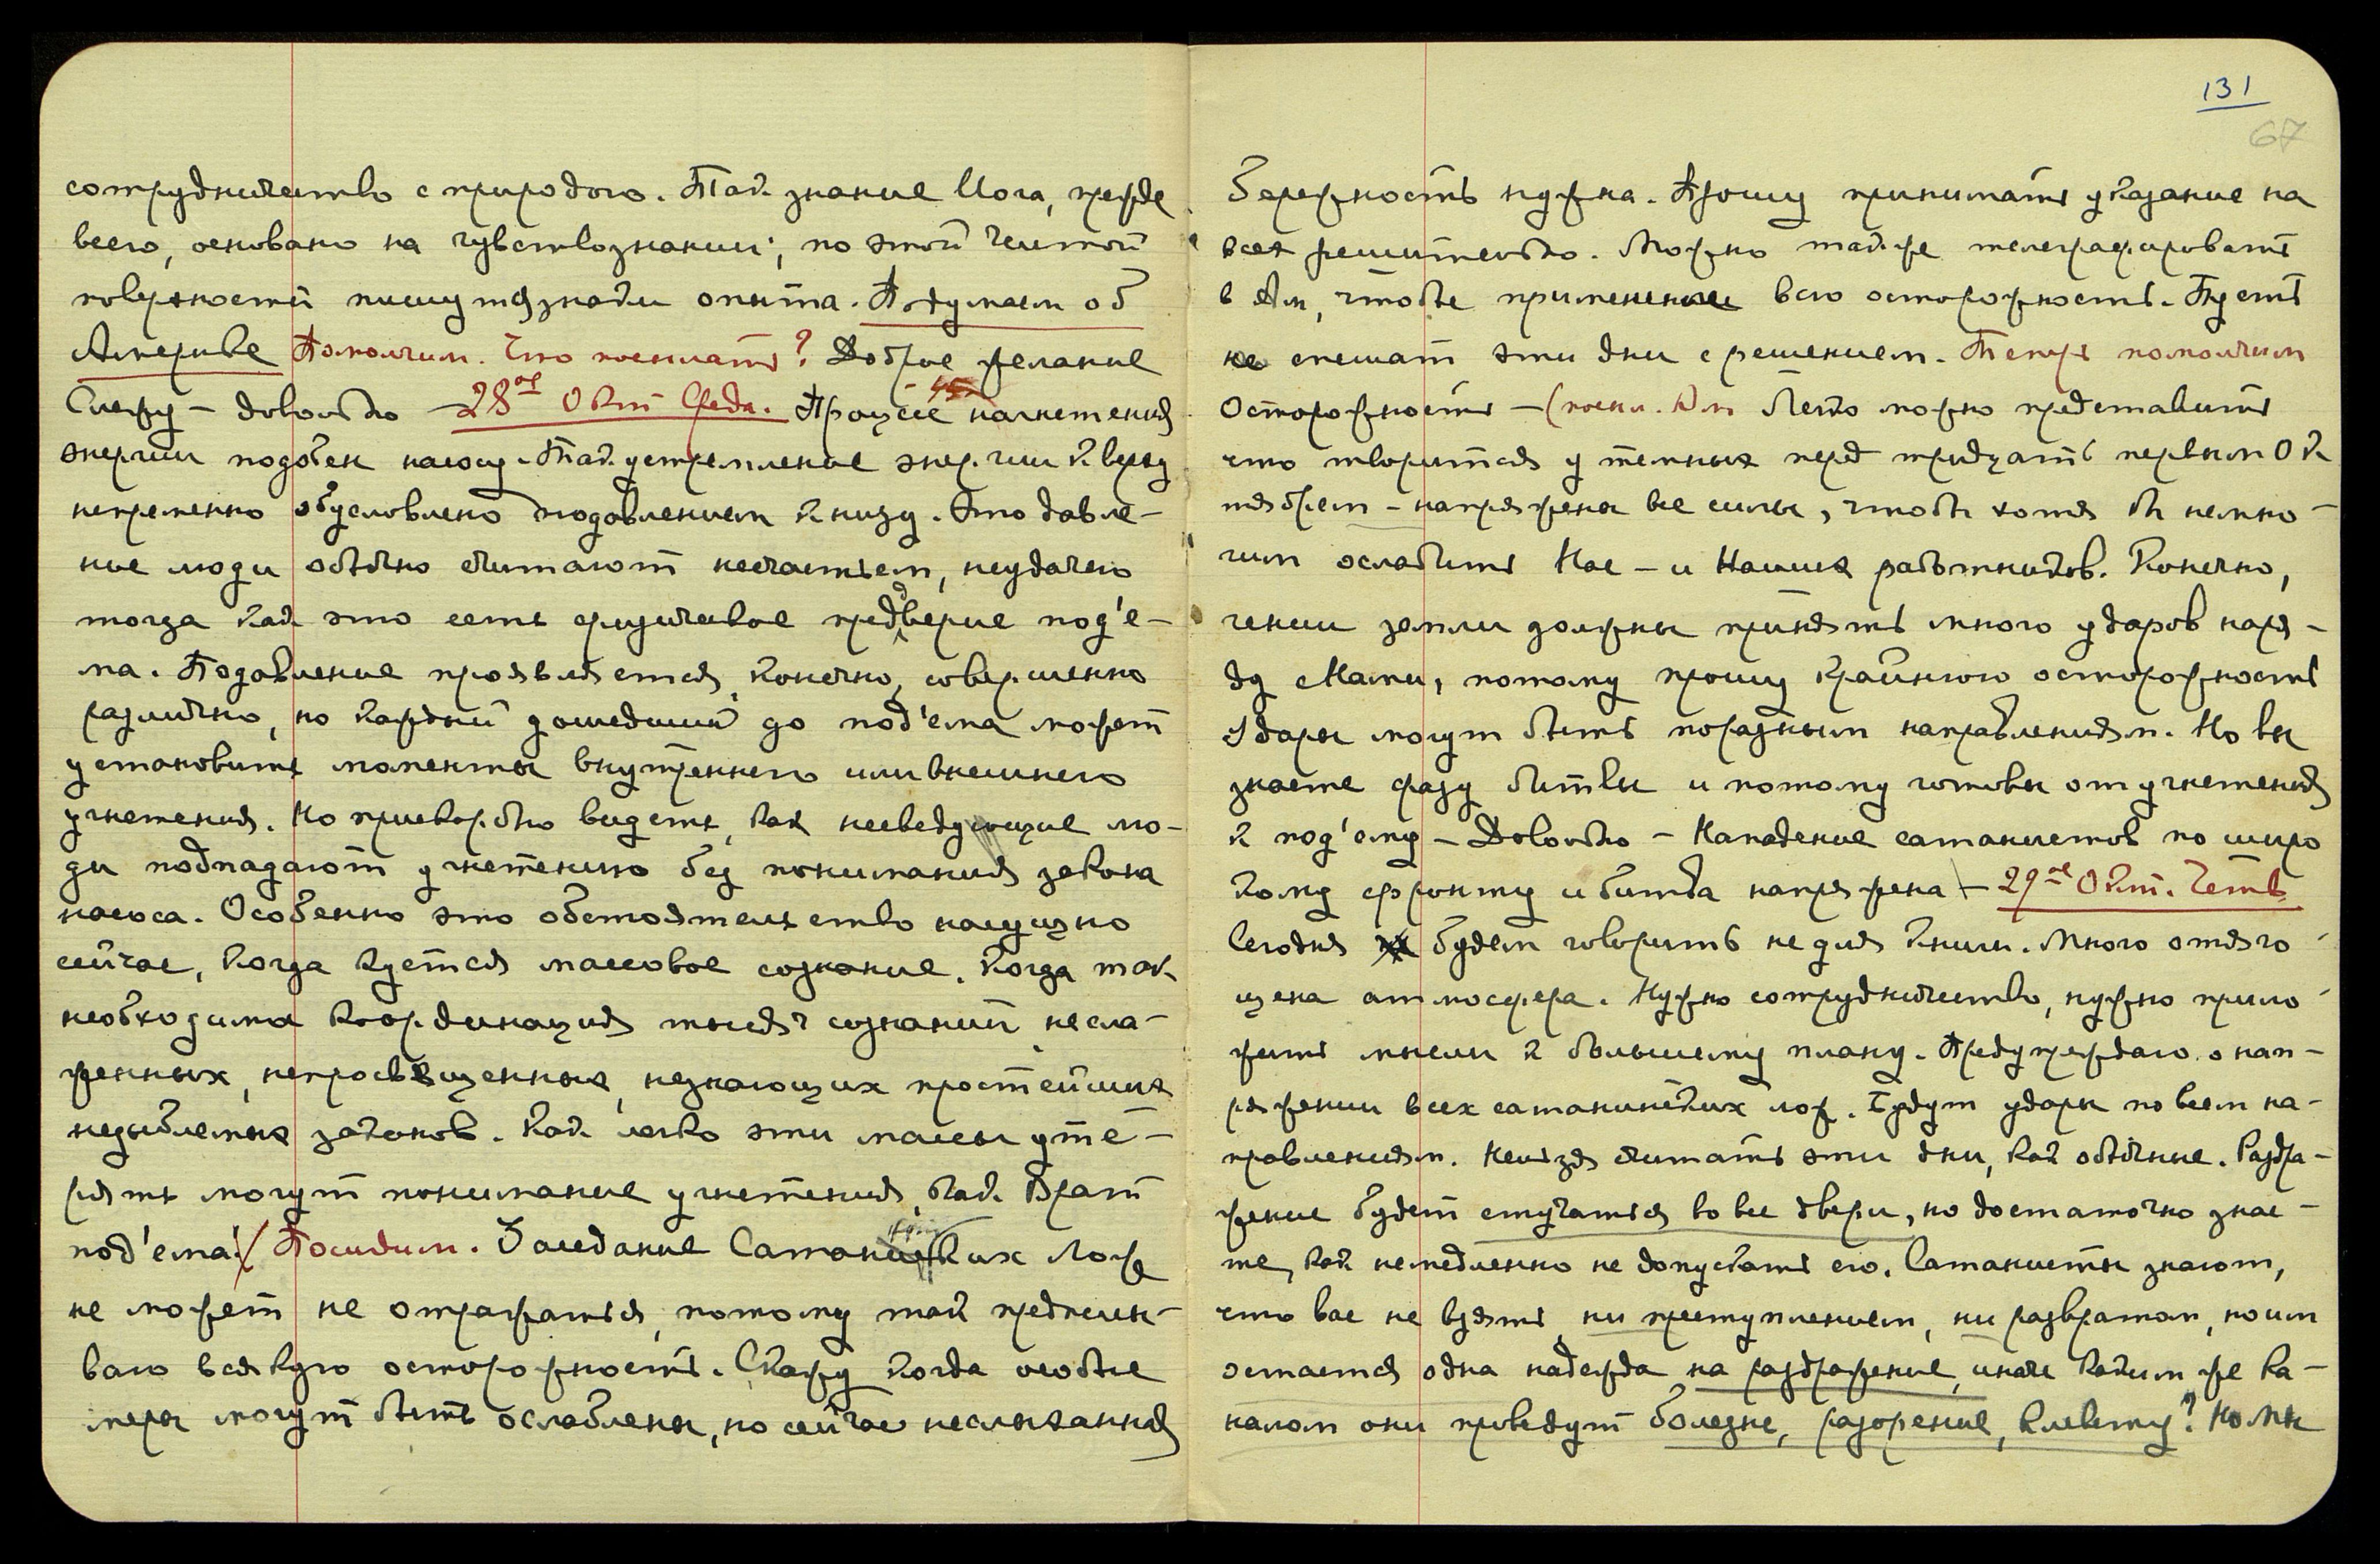 сотрудничество с природою. Так знание Йога, прежде
всего, основано на чувствознании; по этой чистой
поверхности пишутся знаки опыта. Подумаем об
Америке Помолчим. Что послать? Доброе желание
Слежу – довольно – 28ое Окт Среда. Процесс нагнетения
энергии подобен насосу. Так устремление энергии кверху
непременно обусловлено подавлением книзу. Это давле-
ние люди обычно считают несчастьем, неудачею
тогда как это есть физическое предверие под'е-
ма. Подавление проявляется, конечно, совершенно
различно, но каждый дошедший до под'ема может
установить моменты внутреннего или внешнего
угнетения. Но прискорбно видеть, как несведующие лю-
ди подпадают угнетению без понимания закона
насоса. Особенно это обстоятельство насущно
сейчас, когда куется массовое сознание. Когда так
необходима координация тысяч сознаний несла-
женных, непросвещенных, незнающих простейших
незыблемых законов. Как легко эти массы уте-
рять могут понимание угнетения, как Врат
под'ема! Посидим. Заседание Сатанинских Лож
не может не отражаться, потому так предписы-
ваю всякую осторожность. Скажу когда особые
меры могут быть ослаблены, но сейчас неслыханная
131
67
Бережность нужна. Прошу принимать указание на
всех решительно. Можно также телеграфировать
в Ам, чтобы применение всю осторожность. Пусть
не спешат эти дни с решением. Теперь помолчим
Осторожность – (посл. Юм Легко можно представить
что творится у темных перед тридцать первым Ок
тября – напряжены все силы, чтобы хотя бы немно-
гим ослабить Нас – и Наших работников. Конечно,
гении земли должны принять много ударов наря-
ду с Нами, потому прошу крайнюю осторожность
Удары могут быть по разным направлениям. Но вы
знаете фазу битвы и потому готовы от угнетения
к под'ему – Довольно – Нападение сатанистов по широ
кому фронту и битва напряжена – 29ое Окт. Четв
Сегодня будем говорить не для книги. Много отяго-
щена атмосфера. Нужно сотрудничество, нужно прило-
жить мысли к большему плану. Предупреждаю о нап-
ряжении всех сатанинских лож. Будут удары по всем на-
правлениям. Нельзя считать эти дни, как обычные. Раздра-
жение будет стучаться во все двери, но достаточно знае-
те, как немедленно не допускать его. Сатанисты знают,
что вас не взять ни преступлением, ни развратом, но им
остается одна надежда на раздражение, иначе каким же ка-
налом они приведут болезне, разорение, клевету? Но Мы